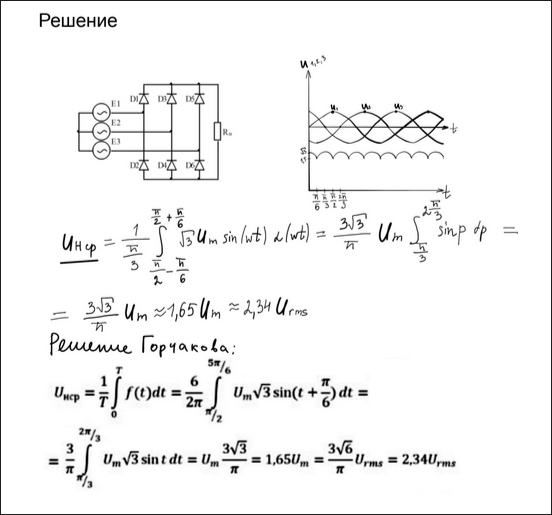 Решение
E1
E2
E3
D1
D3
D5
D2
D4
D6
Rн
U 1,2,3
U₁
U₂
U₃
t
π/6 π/3 π/2 2π/3
t
Uнср = 1/(π/3) ∫_{π/2 - π/6}^{π/2 + π/6} √3 Um sin(wt) d(wt) = 3√3/π Um ∫_{π/3}^{2π/3} sin p dp =
= 3√3/π Um ≈ 1,65 Um ≈ 2,34 Urms
Решение Горчакова:
Uнср = 1/T ∫_0^T f(t)dt = 6/2π ∫_{π/2}^{5π/6} Um√3 sin(t + π/6) dt =
= 3/π ∫_{π/3}^{2π/3} Um√3 sin t dt = Um 3√3/π = 1,65Um = 3√6/π Urms = 2,34Urms